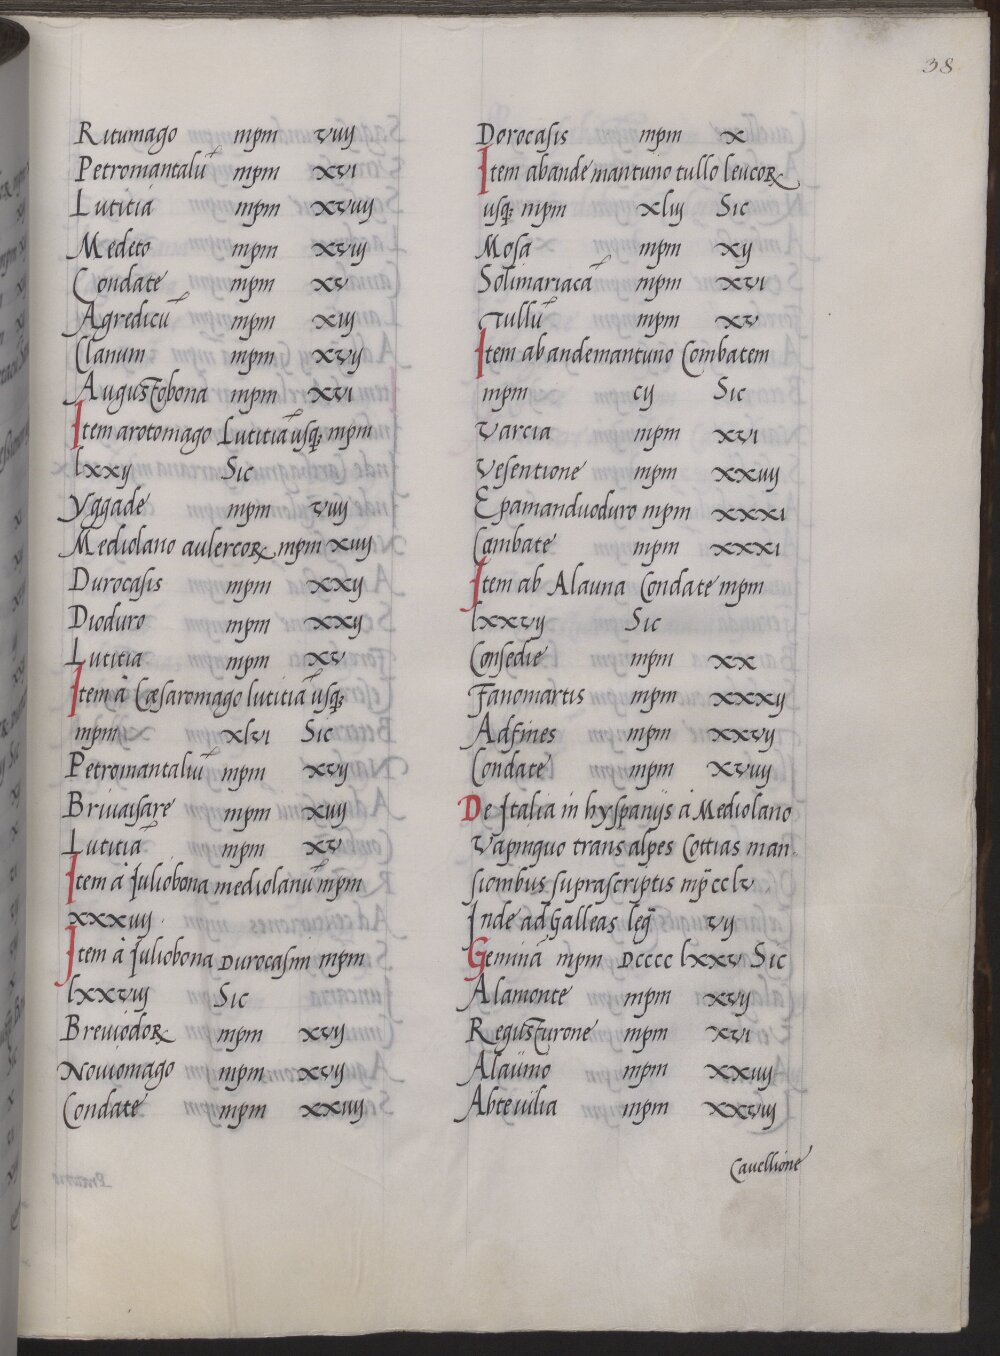 38
Ritumago mpm viiij
Petromantalū mpm xvi
Lutitia mpm xviiij
Medeto mpm xviij
Condate mpm xv
Agredicū mpm xiij
Clanum mpm xvij
Augustobona mpm xvi
Item arotomago Lutitiā usq; mpm
lxxij Sic
Yggade mpm viiij
Mediolano aulercoꝝ mpm xiiij
Durocasis mpm xxij
Dioduro mpm xxij
Lutitia mpm xv
Item à Cæsaromago lutitiā usq;
mpm xlvi Sic
Petromantaliū mpm xvij
Briuaisare mpm xiiij
Lutitiā mpm xv
Item à Juliobona mediolanū mpm
xxxiiij.
Item à Juliobona Durocasini mpm
lxxviij Sic
Breviodoꝝ mpm xvij
Noviomago mpm xvij
Condate mpm xxiiij
Dorocasis mpm x
Item abandemantuno tullo leucoꝝ
usq; mpm xliij Sic
Mosa mpm xij
Solimariacā mpm xvi
Tullū mpm xv
Item abandemantuno Combatem
mpm cij Sic
Varcia mpm xvi
Vesentione mpm xxiiij
Epamanduoduro mpm xxxi
Cambate mpm xxxi
Item ab Alauna Condate mpm
lxxvij Sic
Consedie mpm xx
Fanomartis mpm xxxij
Adfines mpm xxvij
Condate mpm xviiij
De Italia in hyspanijs à Mediolano
Vapinquo trans alpes Cottias man-
sionibus suprascriptis mp̄ cclv
Inde ad Galleas leg̅ vij
Geminā mpm Dcccc lxxv Sic
Alamonte mpm xvij
Regusturone mpm xvi
Alaūno mpm xxiiij
Abteuilia mpm xxviij
Cauellione